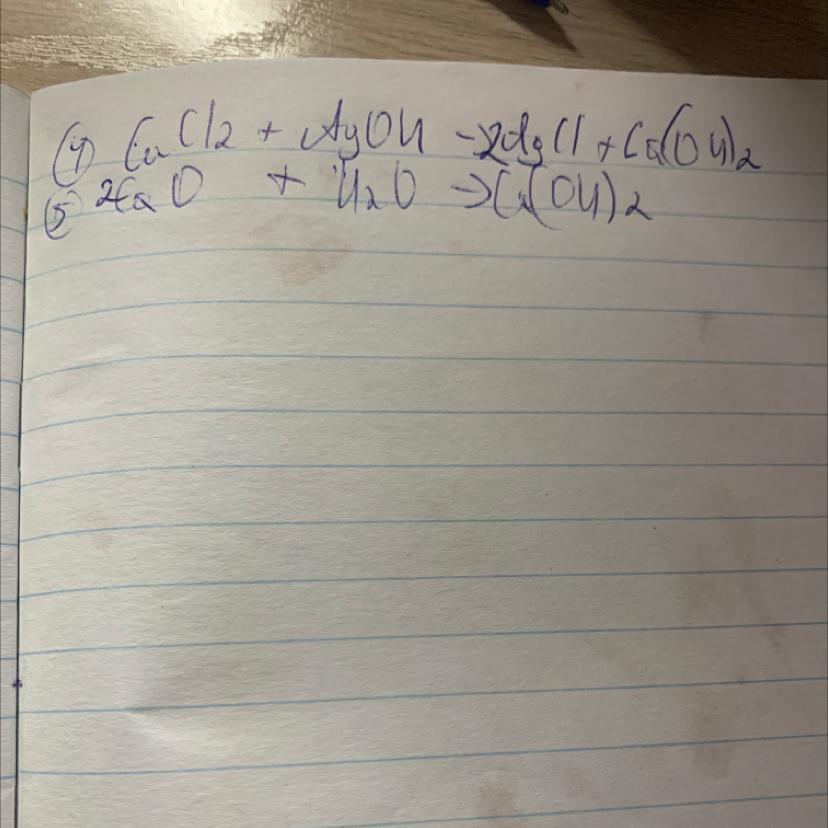 ④ CaCl2 + AgOH → 2AgCl + Ca(OH)2
⑤ 2CaO + H2O → Ca(OH)2